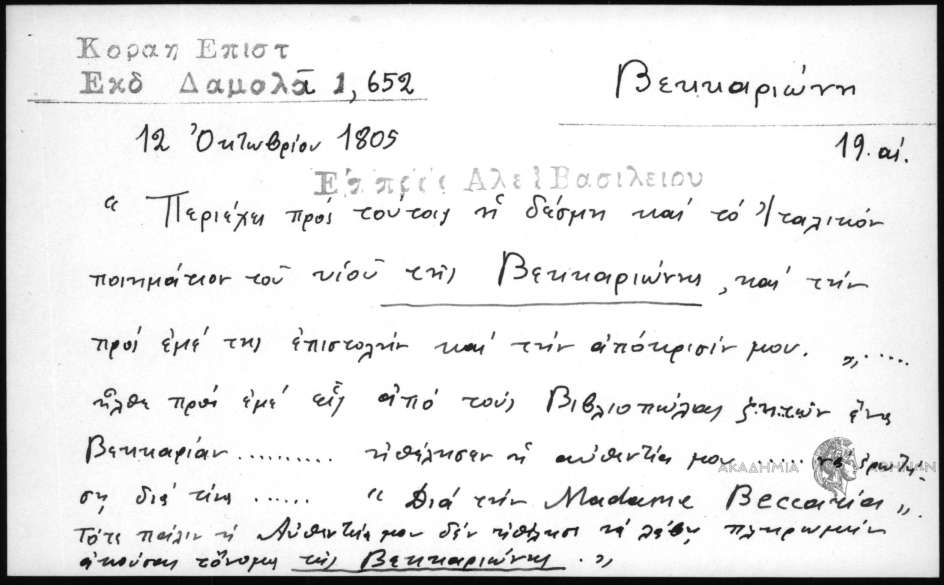 Κοραη Επιστ
Εκδ Δαμαλᾶ 1, 652
Βεκκαριώνη
12 Ὀκτωβρίου 1805
19. αἰ.
Επ πρός Αλεξ Βασιλειου
“ Περιέχει πρός τούτοις ἡ δέσμη καί τό Ἰταλικόν
ποιημάτιον τοῦ υἱοῦ τῆς Βεκκαριώνης, καί τήν
πρός ἐμέ της ἐπιστολήν καί τήν ἀπόκρισίν μου. „ .....
ἦλθε πρός ἐμέ εἷς ἀπό τούς Βιβλιοπώλας ζητῶν ἕνα
Βεκκαρίαν ......... ἠθέλησεν ἡ αὐθεντία μου ...... νά ἐρωτή-
ση, διά τίνα ...... “ Διά τήν Madame Beccaria „
Τότε πάλιν ἡ Αὐθεντία μου δέν ἠθέλησε νά λάβη πληρωμήν
ἀκούσας τὄνομα τῆς Βεκκαριώνης. „
ΑΚΑΔΗΜΙΑ ΑΘΗΝΩΝ